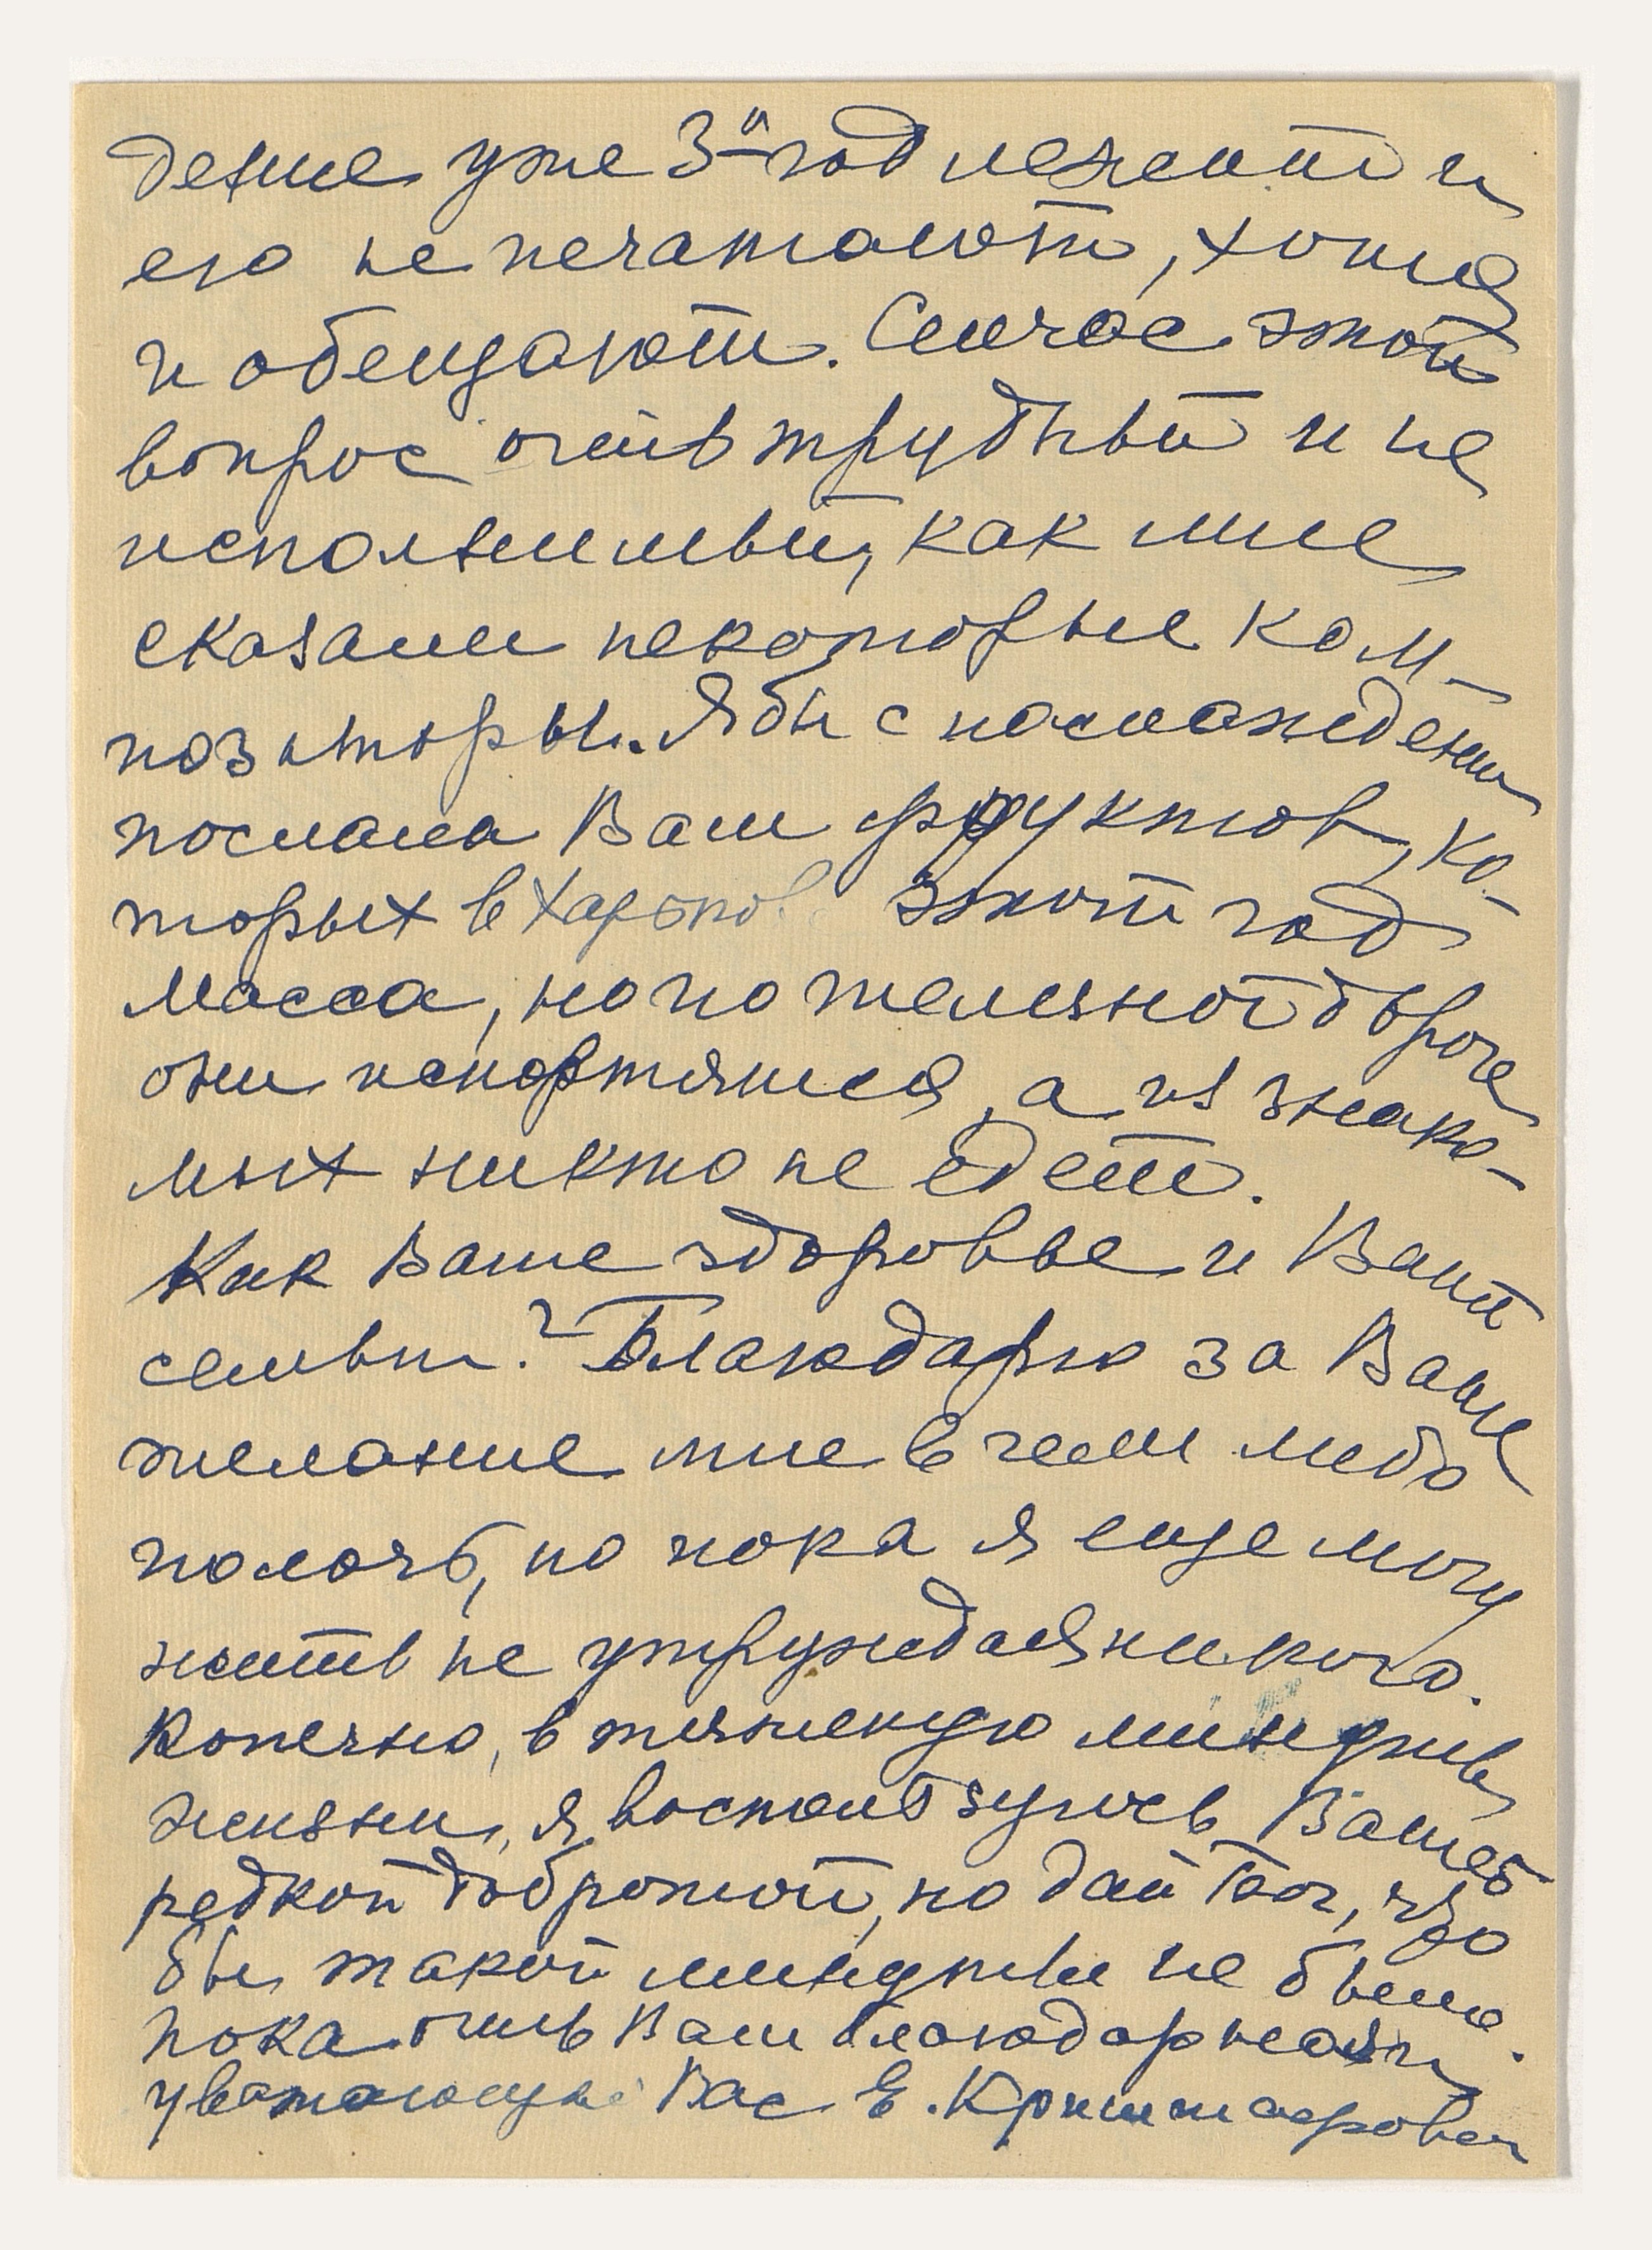 дение уже 3й год лежит и
его не печатают, хотя
и обещают. Сейчас этот
вопрос очень трудный и не
исполнимый, как мне
сказали некоторые ком-
позиторы. Я бы с наслаждением
послала Вам фруктов, ко-
торых в Харькове этот год
масса, но по железной дороге
они испортятся, а из знако-
мых никто не едет.
Как Ваше здоровье и Вашей
семьи? Благодарю за Ваше
желание мне в чем либо
помочь, но пока я еще могу
жить не утруждая никого.
Конечно, в тяжелую минуту
жизни, я воспользуюсь Вашей
редкой добротой, но дай Бог, что
бы такой минуты не было.
Пока очень Вам благодарная и
уважающая Вас Е.